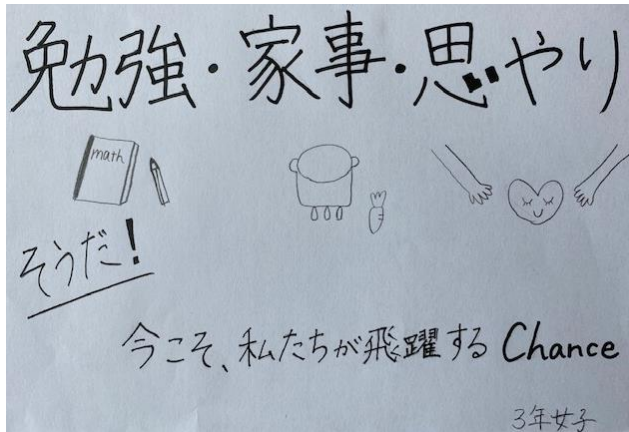 勉強・家事・思いやり
math
そうだ!
今こそ、私たちが飛躍する Chance
3年女子